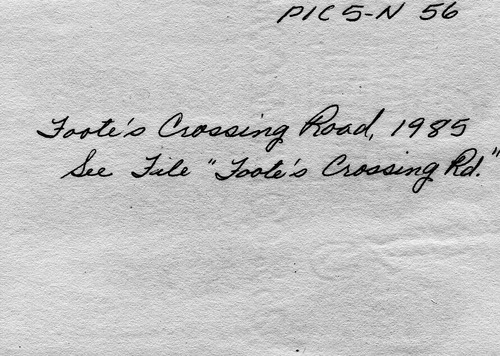 PIC 5-N 56
Foote's Crossing Road, 1985
See File "Foote's Crossing Rd."